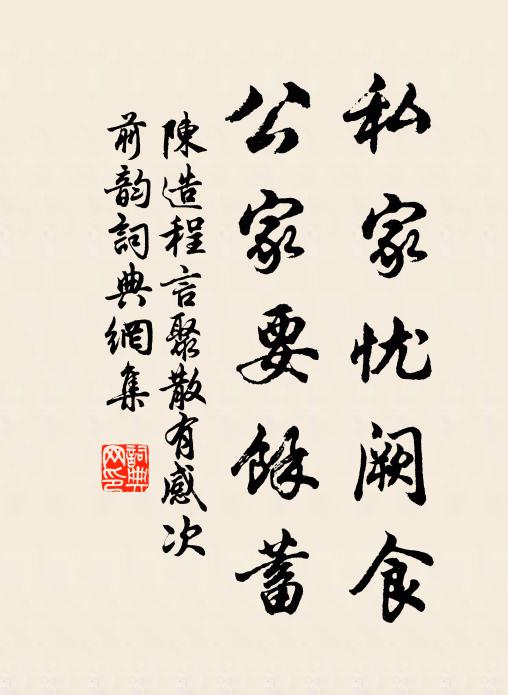 私家忧阙食
公家要餘蓄
陳造程言聚散有感次
前韵詞典網集
詞典网印